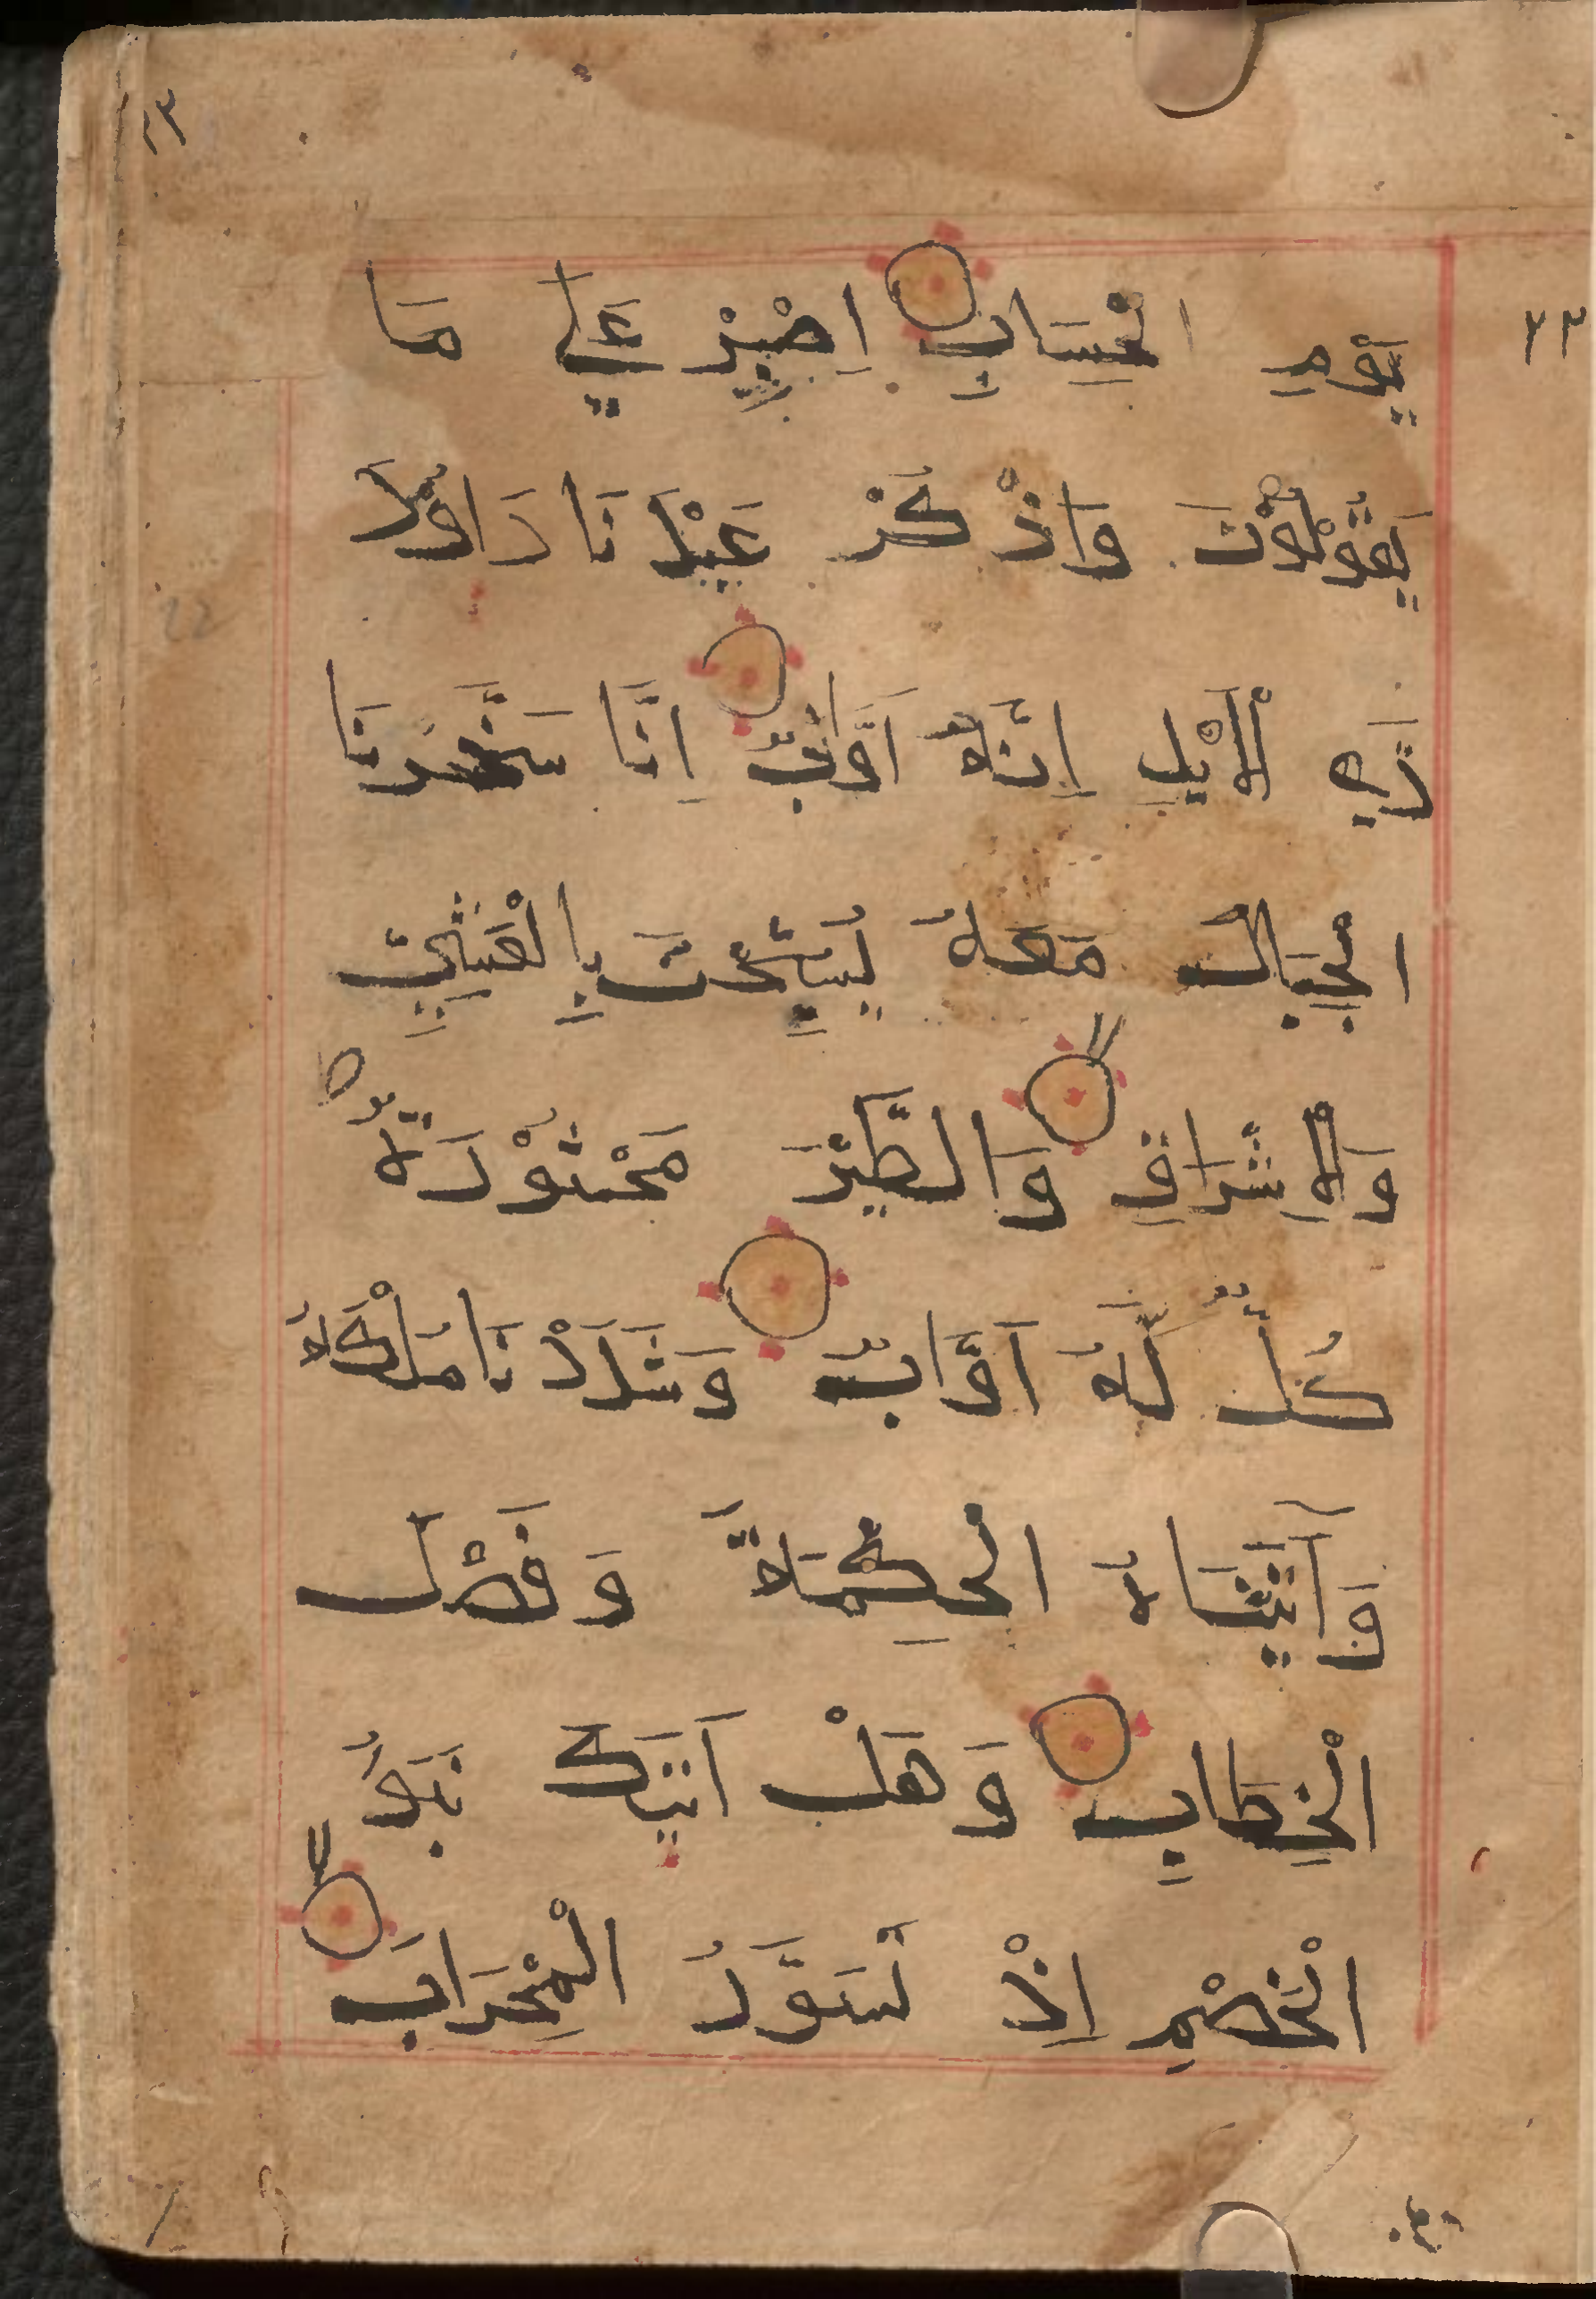 ٢٣
٣٣
يَوْمِ الْحِسَابِ اِصْبِرْ عَلٰى مَا
يَقُوْلُوْنَ وَاذْكُرْ عَبْدَنَا دَاوُدَ
ذَا الْاَيْدِ اِنَّهُ اَوَّابٌ اِنَّا سَخَّرْنَا
الْجِبَالَ مَعَهُ يُسَبِّحْنَ بِالْعَشِيِّ
وَالْاِشْرَاقِ وَالطَّيْرَ مَحْشُوْرَةً
كُلٌّ لَّهُ اَوَّابٌ وَشَدَدْنَا مُلْكَهُ
وَاٰتَيْنَاهُ الْحِكْمَةَ وَفَصْلَ
الْخِطَابِ وَهَلْ اَتٰيكَ نَبَؤُا
الْخَصْمِ اِذْ تَسَوَّرُ الْمِحْرَابَ